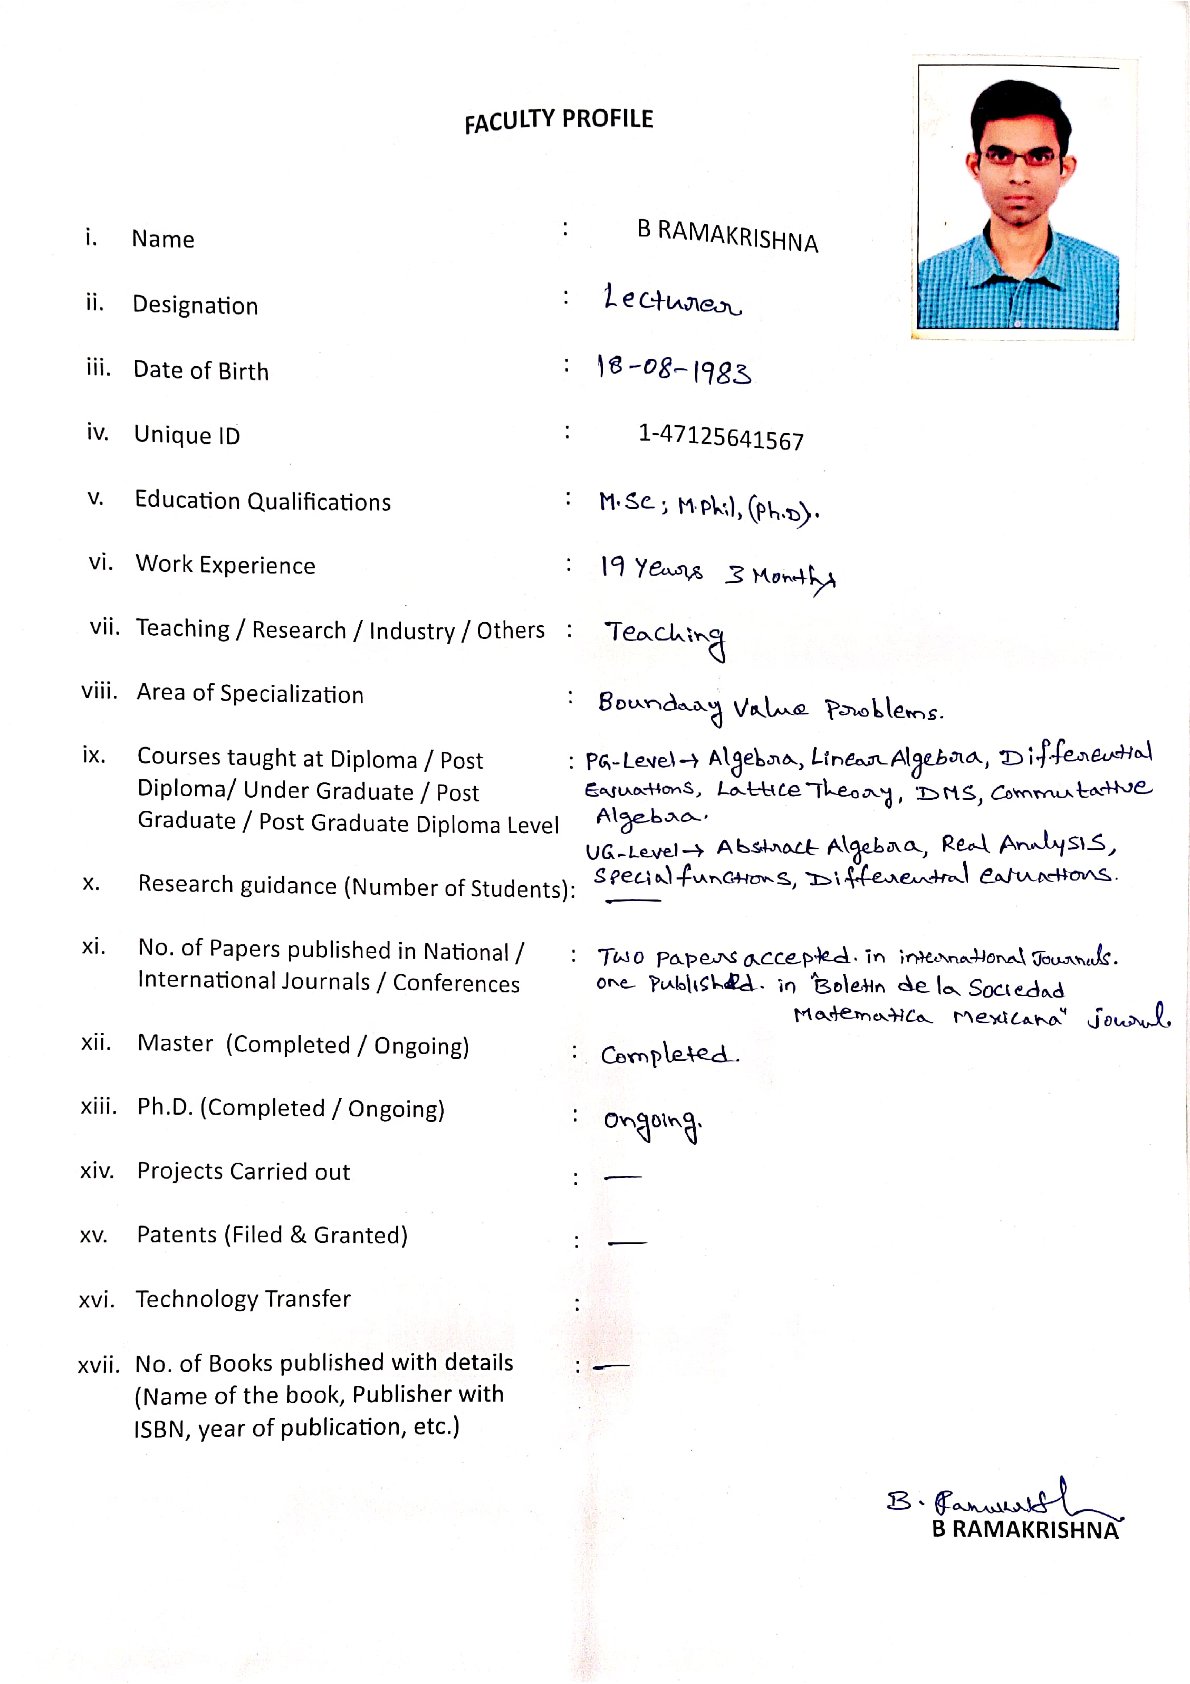 FACULTY PROFILE
i. Name : B RAMAKRISHNA
ii. Designation : Lecturer
iii. Date of Birth : 18-08-1983
iv. Unique ID : 1-47125641567
v. Education Qualifications : M.Sc; M.Phil, (Ph.D).
vi. Work Experience : 19 Years 3 Months
vii. Teaching / Research / Industry / Others : Teaching
viii. Area of Specialization : Boundary Value Problems.
ix. Courses taught at Diploma / Post : PG-Level → Algebra, Linear Algebra, Differential
Diploma/ Under Graduate / Post Equations, Lattice Theory, DMS, Commutative
Graduate / Post Graduate Diploma Level Algebra.
UG-Level → Abstract Algebra, Real Analysis,
Special functions, Differential equations.
x. Research guidance (Number of Students): —
xi. No. of Papers published in National / : Two papers accepted. in international Journals.
International Journals / Conferences one Published. in "Boletin de la Sociedad
Matematica Mexicana" journal.
xii. Master (Completed / Ongoing) : Completed.
xiii. Ph.D. (Completed / Ongoing) : Ongoing.
xiv. Projects Carried out : —
xv. Patents (Filed & Granted) : —
xvi. Technology Transfer :
xvii. No. of Books published with details : —
(Name of the book, Publisher with
ISBN, year of publication, etc.)
B.
B RAMAKRISHNA